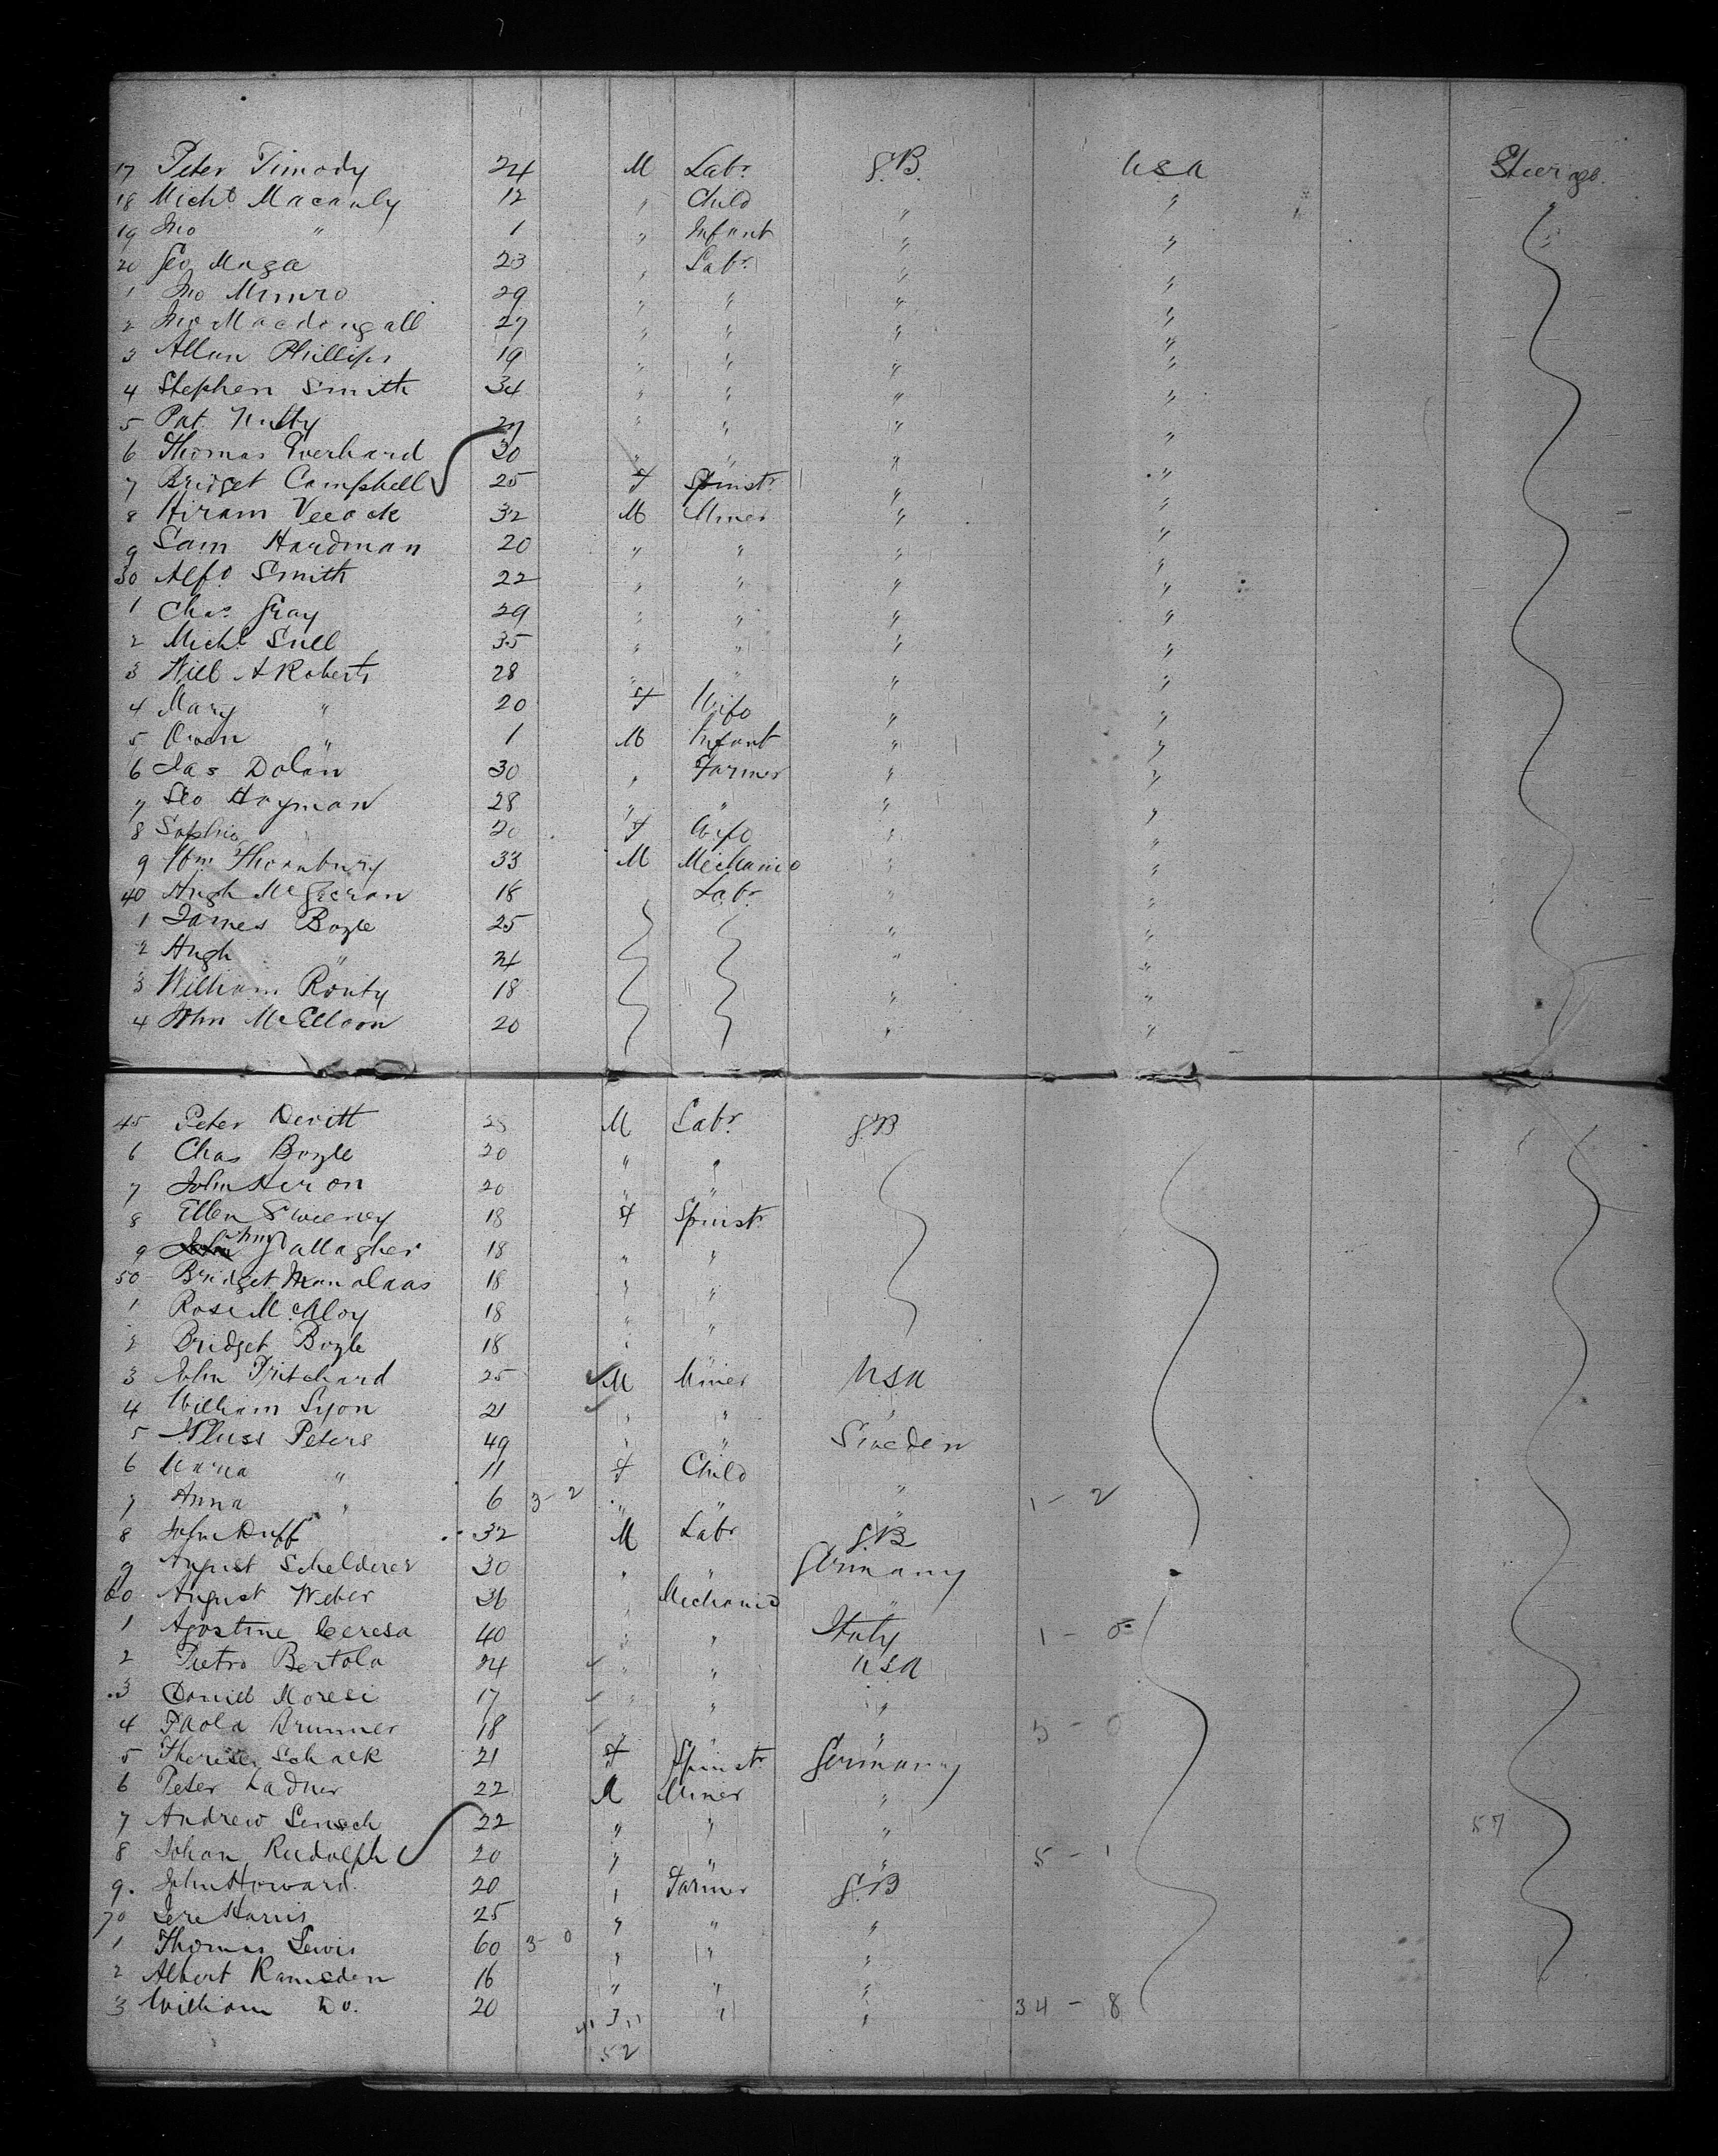 17 Peter Timody 24 M Labr. G.B. USA Steerage.
18 Michl. Macauly 12 " Child " "
19 Jno " 1 " Infant " "
20 Geo Muga 23 " Labr. " "
1 Jno Munro 29 " " " "
2 Jno Macdougall 27 " " " "
3 Allan Phillips 19 " " " "
4 Stephen Smith 34 " " " "
5 Pat. Nulty 27 " " " "
6 Thomas Everhard 30 " " " "
7 Bridget Campbell 25 F Spinstr. " "
8 Hiram Veeock 32 M Miner " "
9 Sam Hardman 20 " " " "
30 Alfd. Smith 22 " " " "
1 Chas. Gray 29 " " " "
2 Michl. Snell 35 " " " "
3 Will A Roberts 28 " " " "
4 Mary " 20 F Wife " "
5 Owen " 1 M Infant " "
6 Jas Dolan 30 " Farmer " "
7 Geo Hayman 28 " " " "
8 Sophia " 20 F Wife " "
9 Wm. Thornbury 33 M Mechanic " "
40 Hugh Mc 18 Labr. " "
1 James Boyle 25 " "
2 Hugh " 24 " "
3 William Routy 18 " "
4 John McElloon 20 " "
45 Peter Devitt 28 M Labr. G.B
6 Chas Boyle 20 " "
7 John Heron 20 " "
8 Ellen Sweeney 18 F Spinstr.
9 Gallagher 18 " "
50 Bridget 18 " "
1 Rose McAloy 18 " "
2 Bridget Boyle 18 "
3 John Pritchard 25 M Miner USA
4 William Lyon 21 " " "
5 Peters 49 " " Sweden
6 Maria " 11 F Child
7 Anna " 6 3-2 " " " 1-2
8 John Duff 32 M Labr G.B
9 August Schelderer 30 " " Germany
60 August Weber 36 " Mechanic "
1 Agostine Ceresa 40 " " Italy 1-0
2 Pietro Bertola 24 " " USA
3 Daniel Moresi 17 " " "
4 Paola Brunner 18 " " 3-0
5 Therese Schack 21 F Spinstr Germany
6 Peter Ladner 22 M Miner "
7 Andrew Sensch 22 " " " 57
8 Johan Rudolph 20 " " " 5-1
9. John Howard. 20 " Farmer G.B
70 Jere Harris 25 " " "
1 Thomas Lewis 60 3-0 " " "
2 Albert Ramsden 16 " " "
3 William Do. 20 " " " 34-8
41 11
52